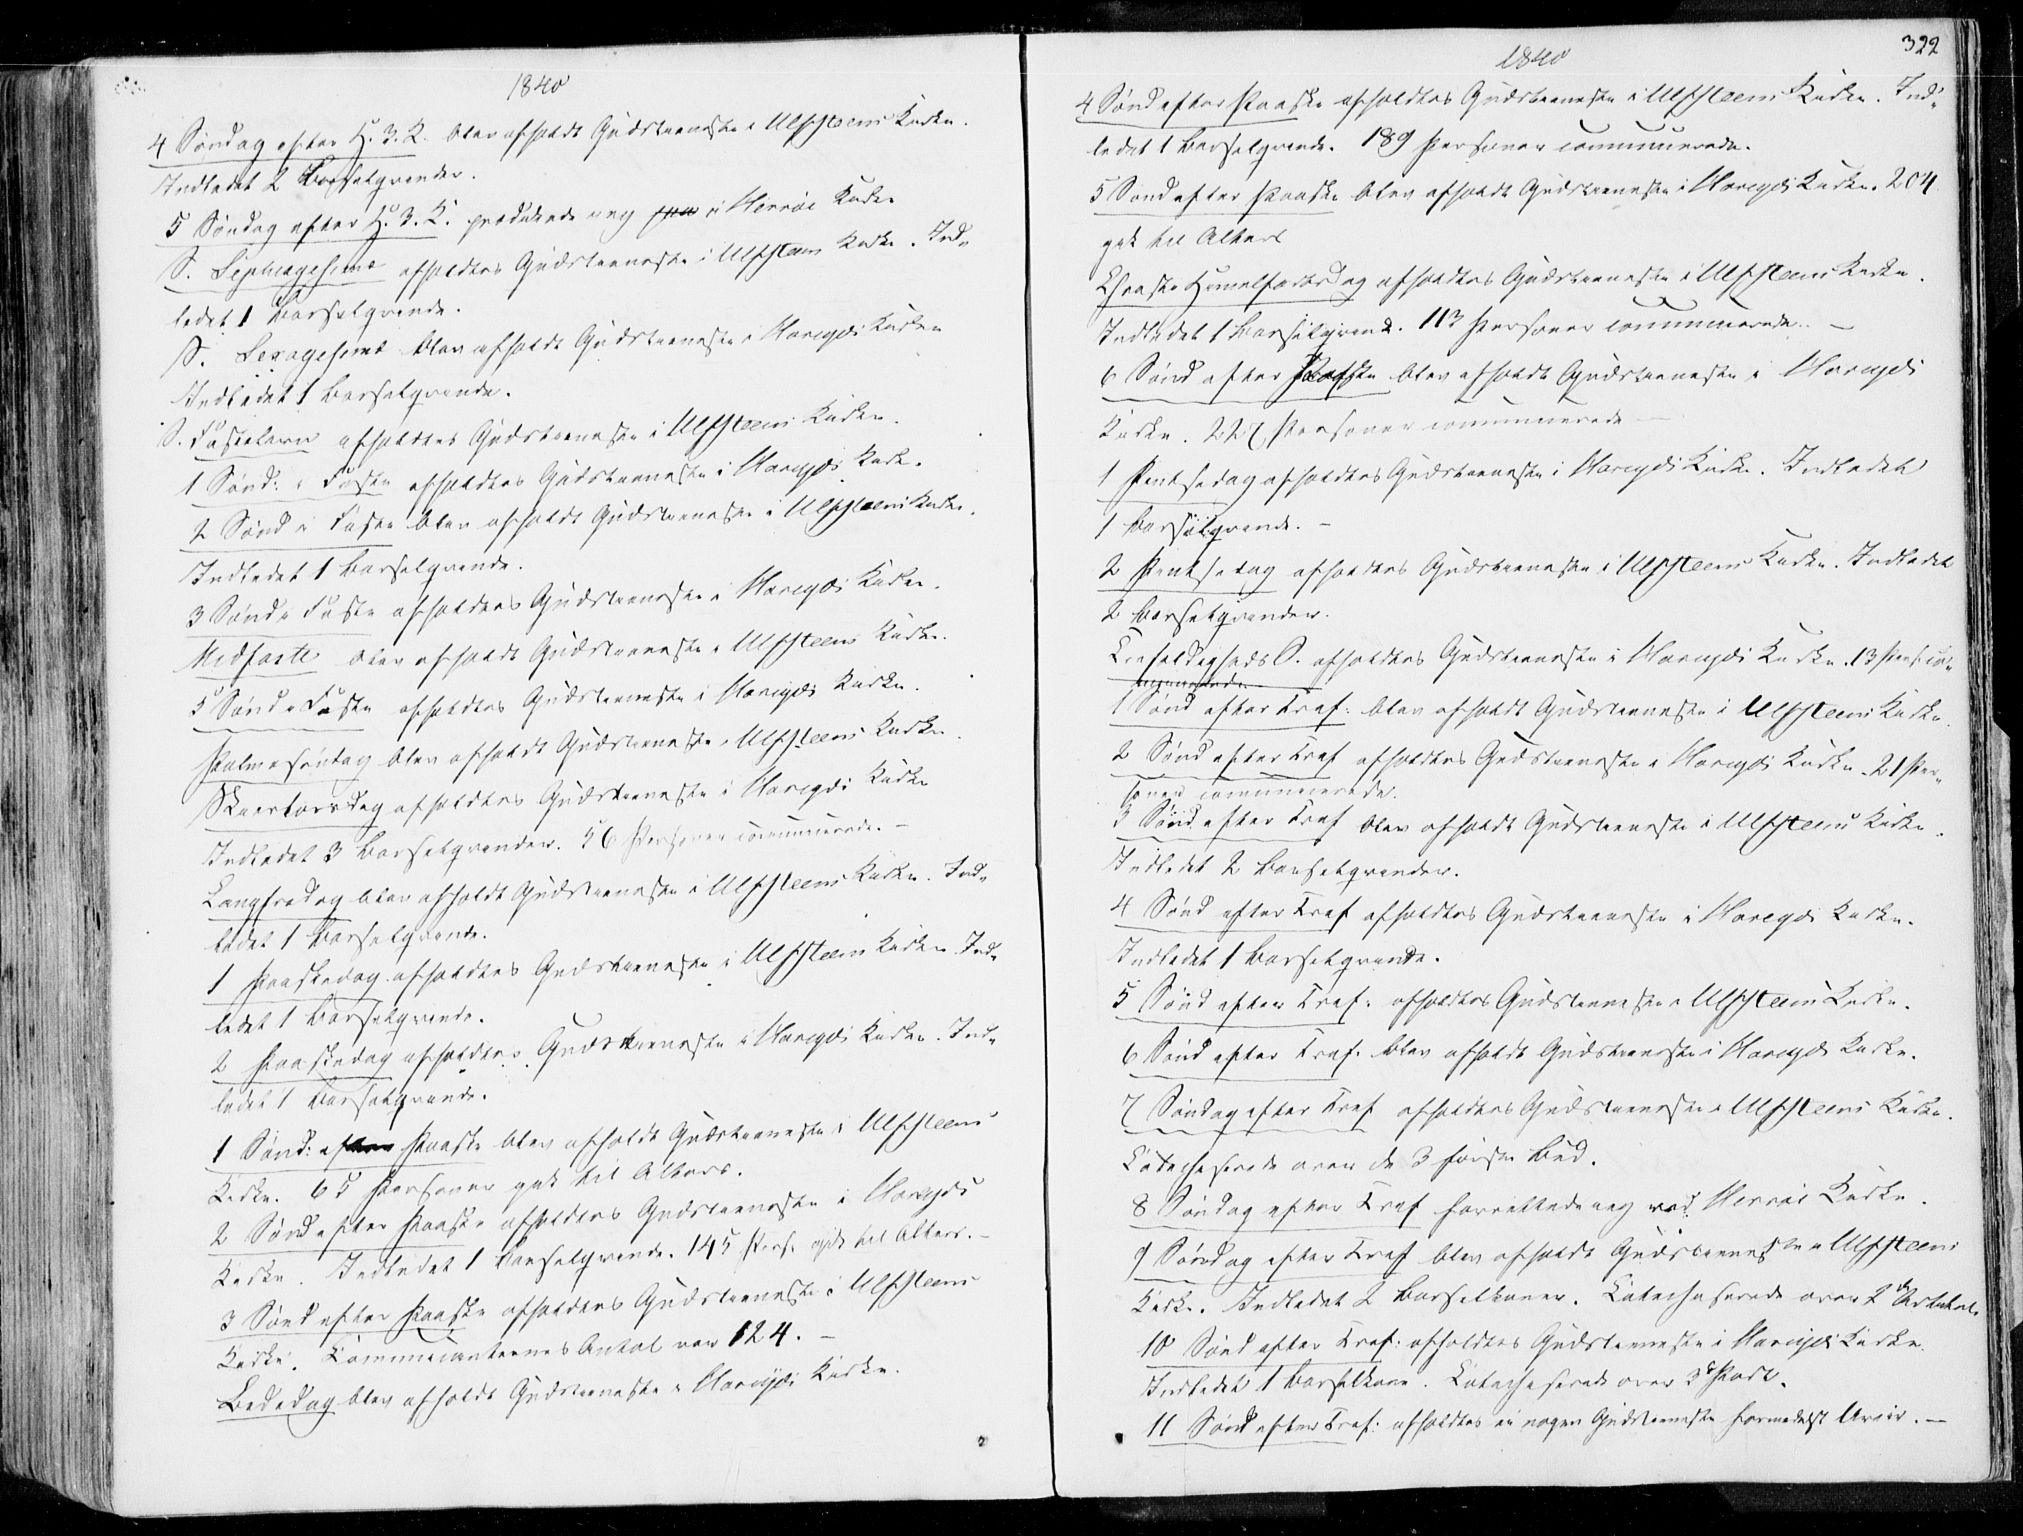 1840
4 Søndag efter H. 3. K. blev afholdt Gudstieneste i Ulfsteens Kirke.
Indledet 2 Barselqvinder.
5 Søndag efter H. 3. K. prædikede jeg i Herrøe Kirke
S. Septuagesima afholdtes Gudstieneste i Ulfsteens Kirke. Ind-
ledet 1 Barselqvinde.
S. Sexagesima blev afholdt Gudstieneste i Hareids Kirke
Indledet 1 Barselqvinde.
S. Fastelavn afholdtes Gudstieneste i Ulfsteens Kirke.
1 Sønd: i Faste afholdtes Gudstieneste i Hareids Kirke.
2 Sønd i Faste blev afholdt Gudstieneste i Ulfsteens Kirke.
Indledet 1 Barselqvinde.
3 Sønd i Faste afholdtes Gudstieneste i Hareids Kirke.
Midfaste blev afholdt Gudstieneste i Ulfsteens Kirke.
5 Sønd i Faste afholdtes Gudstieneste i Hareids Kirke.
Palmesøndag blev afholdt Gudstieneste i Ulfsteens Kirke.
Skiertorsdag afholdtes Gudstieneste i Hareids Kirke
Indledet 3 Barselqvinder. 56 Personer communicerede. –
Langfredag blev afholdt Gudstieneste i Ulfsteens Kirke. Ind-
ledet 1 Barselqvinde.
1 Paaskedag afholdtes Gudstieneste i Ulfsteens Kirke. Ind-
ledet 1 Barselqvinde.
2 Paaskedag afholdtes Gudstieneste i Hareids Kirke. Ind-
ledet 1 Barselqvinde.
1 Sønd: efter Paaske blev afholdt Gudstieneste i Ulfsteens
Kirke. 65 Personer gik til Alters.
2 Sønd efter Paaske afholdtes Gudstieneste i Hareids
Kirke. Indledet 1 Barselqvinde. 145 Pers. gik til Alters. –
3 Sønd efter Paaske afholdtes Gudstieneste i Ulfsteens
Kirke. Communicanternes Antal var 124. –
Bededag blev afholdt Gudstieneste i Hareids Kirke.
322
1840
4 Sønd efter Paaske afholdtes Gudstieneste i Ulfsteens Kirke. Ind-
ledet 1 Barselqvinde. 189 Personer communicerede.
5 Sønd efter Paaske blev afholdt Gudstieneste i Hareids Kirke. 204
gik til Alters
Christi Himmelfartsdag afholdtes Gudstieneste i Ulfsteens Kirke.
Indledet 1 Barselqvinde. 113 Personer communicerede. –
6 Sønd efter Paaske blev afholdt Gudstieneste i Hareids
Kirke. 227 Personer communicerede –
1 Pintsedag afholdtes Gudstieneste i Hareids Kirke. Indledet
1 Barselqvinde. –
2 Pintsedag afholdtes Gudstieneste i Ulfsteens Kirke. Indledet
2 Barselqvinder.
Trefoldigheds S. afholdtes Gudstieneste i Hareids Kirke. 13 Pers. co-
municerede
1 Sønd efter Tref: blev afholdt Gudstieneste i Ulfsteens Kirke.
2 Sønd efter Tref afholdtes Gudstieneste i Hareids Kirke. 21 Per-
soner communicerede.
3 Sønd efter Tref blev afholdt Gudstieneste i Ulfsteens Kirke.
Indledet 2 Barselqvinder.
4 Sønd efter Tref afholdtes Gudstieneste i Hareids Kirke.
Indledet 1 Barselqvinde.
5 Sønd efter Tref: afholdtes Gudstieneste i Ulfsteens Kirke.
6 Sønd efter Tref. blev afholdt Gudstieneste i Hareids Kirke.
7 Søndag efter Tref afholdtes Gudstieneste i Ulfsteens Kirke.
Catechiserede over de 3 første Bud.
8 Søndag efter Tref forrettede jeg ved Herrøe Kirke.
9 Søndag efter Tref blev afholdt Gudstieneste i Ulfsteens
Kirke. Indledet 2 Barselkoner. Catechiserede over 2den Artikel.
10 Sønd efter Tref: afholdtes Gudstieneste i Hareids Kirke.
Indledet 1 Barselkone. Catechiserede over 3de Part.
11 Sønd efter Tref: afholdtes ei nogen Gudstieneste formedelst Uveir. –